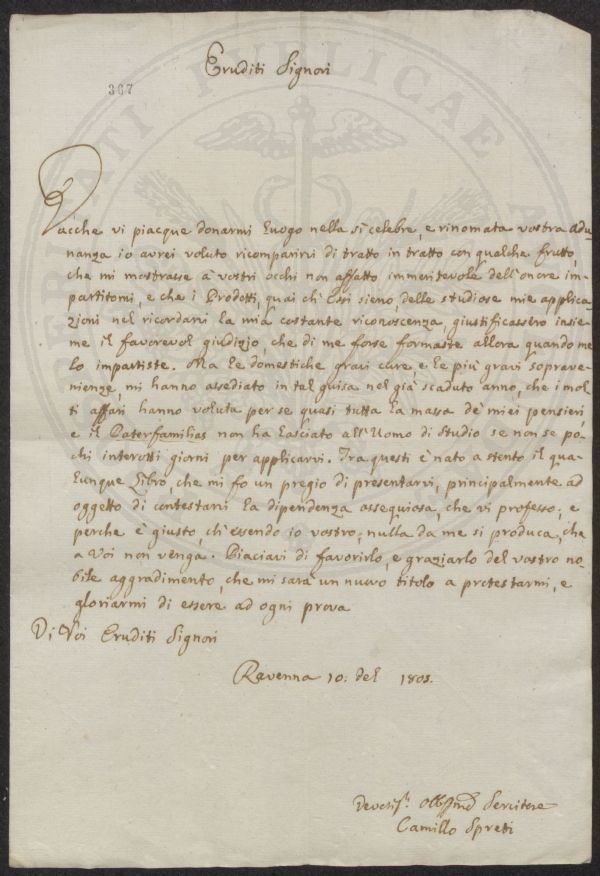 Eruditi Signori
367
Dacche vi piacque donarmi luogo nella sì celebre, e rinomata vostra Adu-
nanza io avrei voluto ricomparirvi di tratto in tratto con qualche frutto,
che mi mostrasse a' vostri occhi non affatto immeritevole dell'onore im-
partitomi, e che i Prodotti, quai ch'essi sieno, delle studiose mie applica-
zioni nel ricordarvi la mia costante riconoscenza, giustificassero insie-
me il favorevol giudizio, che di me forse formaste allora quando me
lo impartiste. Ma le domestiche gravi cure, e le più gravi soprave-
nienze, mi hanno assediato in tal guisa nel già scaduto anno, che i mol-
ti affari hanno voluta per se quasi tutta la massa de' miei pensieri,
e il Paterfamilias non ha lasciato all'Uomo di Studio se non se po-
chi interotti giorni per applicarvi. Tra questi è nato a stento il qua-
lunque Libro, che mi fo un pregio di presentarvi, principalmente ad
oggetto di contestarvi la dipendenza ossequiosa, che vi professo, e
perche è giusto, ch'essendo io vostro, nulla da me si produca, che
a Voi non venga. Piaciavi di favorirlo, e graziarlo del vostro no-
bile aggradimento, che mi sarà un nuovo titolo a protestarmi, e
gloriarmi di essere ad ogni prova
Di Voi Eruditi Signori
Ravenna 10: del
Servitore
Camillo Spreti